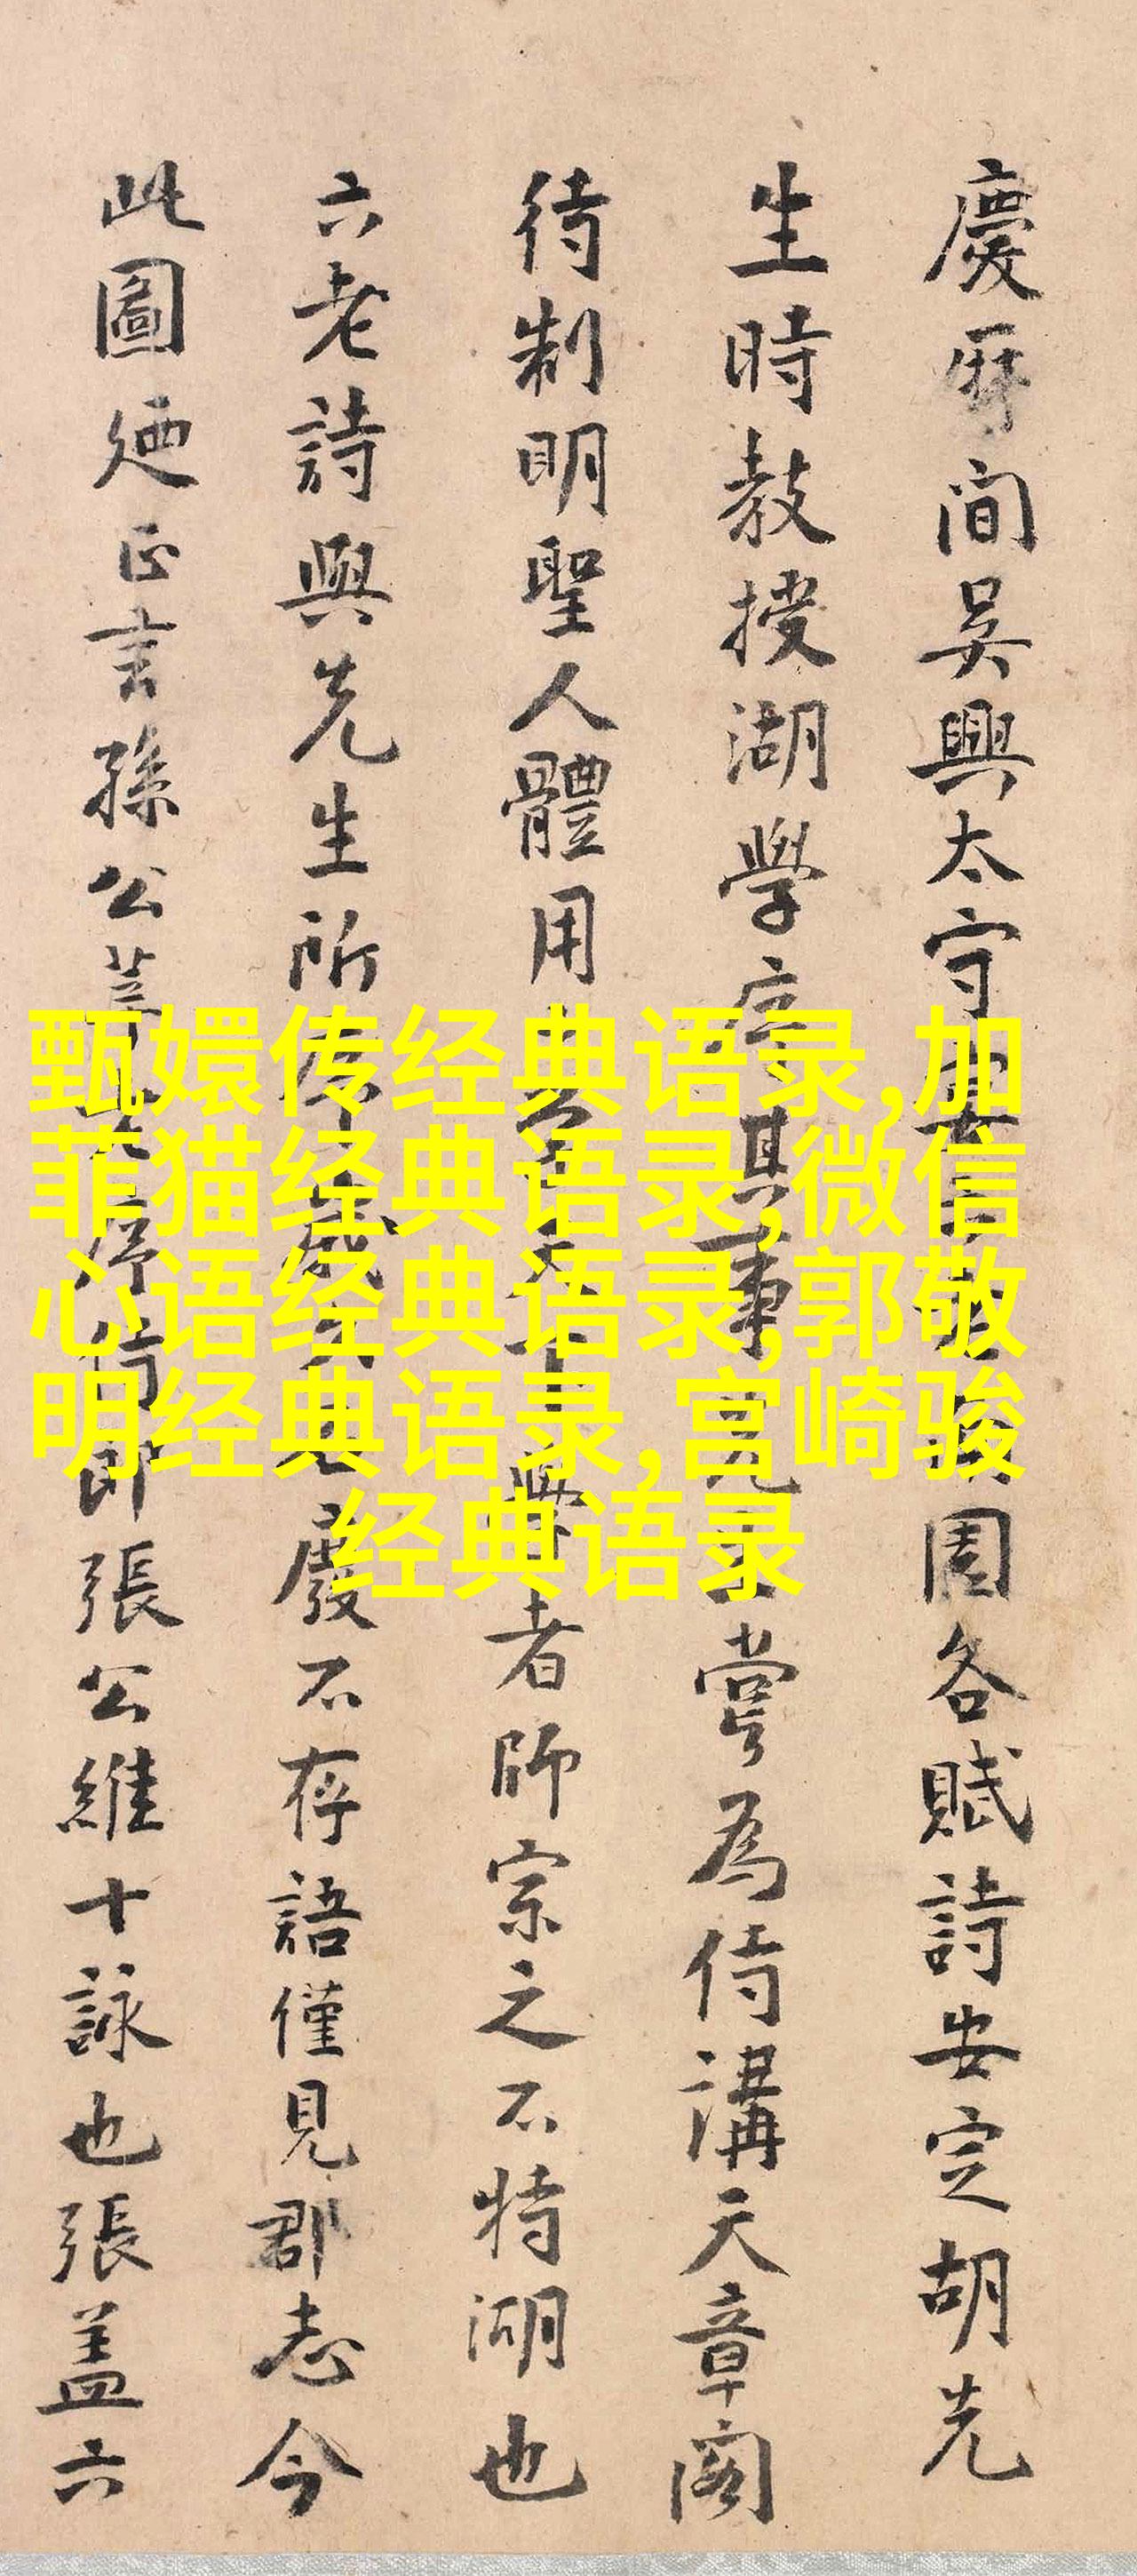 慶曆間吳興太守
園各賦詩安定胡先
生時教授湖學
其事
嘗為侍講天章閣
待制明聖人體用
學者師宗之不特湖也
六老詩與先生所
廢不存語僅見郡志今
此圖廼正言孫公
序
即張公維十詠也張蓋六
甄嬛传经典语录,加
菲猫经典语录,微信
心语经典语录,郭敬
明经典语录,宫崎骏
经典语录